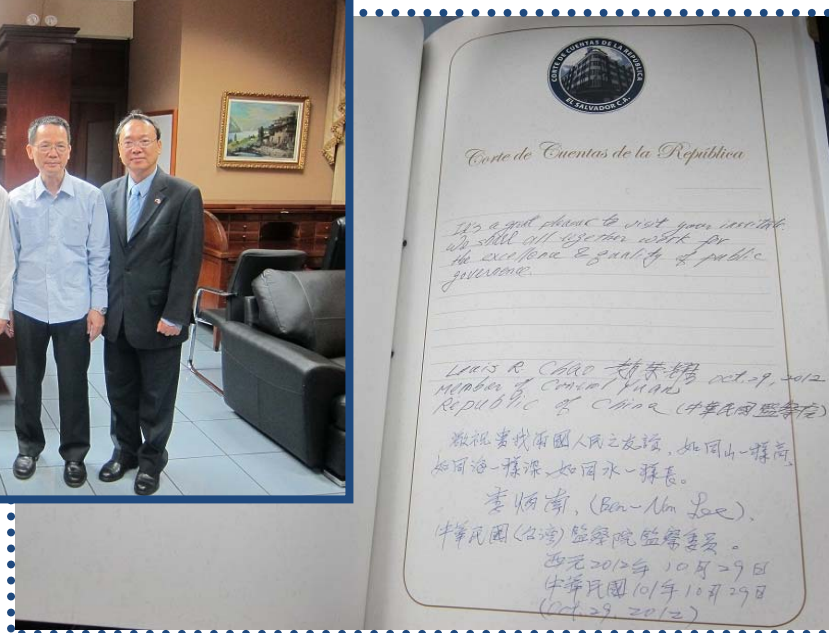 CORTE DE CUENTAS DE LA REPUBLICA
EL SALVADOR C.A.
Corte de Cuentas de la República
It's a great pleasure to visit your institute.
We shall all together work for
the excellence & quality of public
governence.
Louis R. Chao 趙榮耀 Oct. 29, 2012
Member of Control Yuan
Republic of China (中華民國監察院)
敬祝貴我兩國人民之友誼,如同山一樣高,
如同海一樣深,如同水一樣長。
李炳南, (Ben-Nan Lee),
中華民國(台灣)監察院監察委員。
西元2012年10月29日
中華民國101年10月29日
(Oct. 29, 2012)